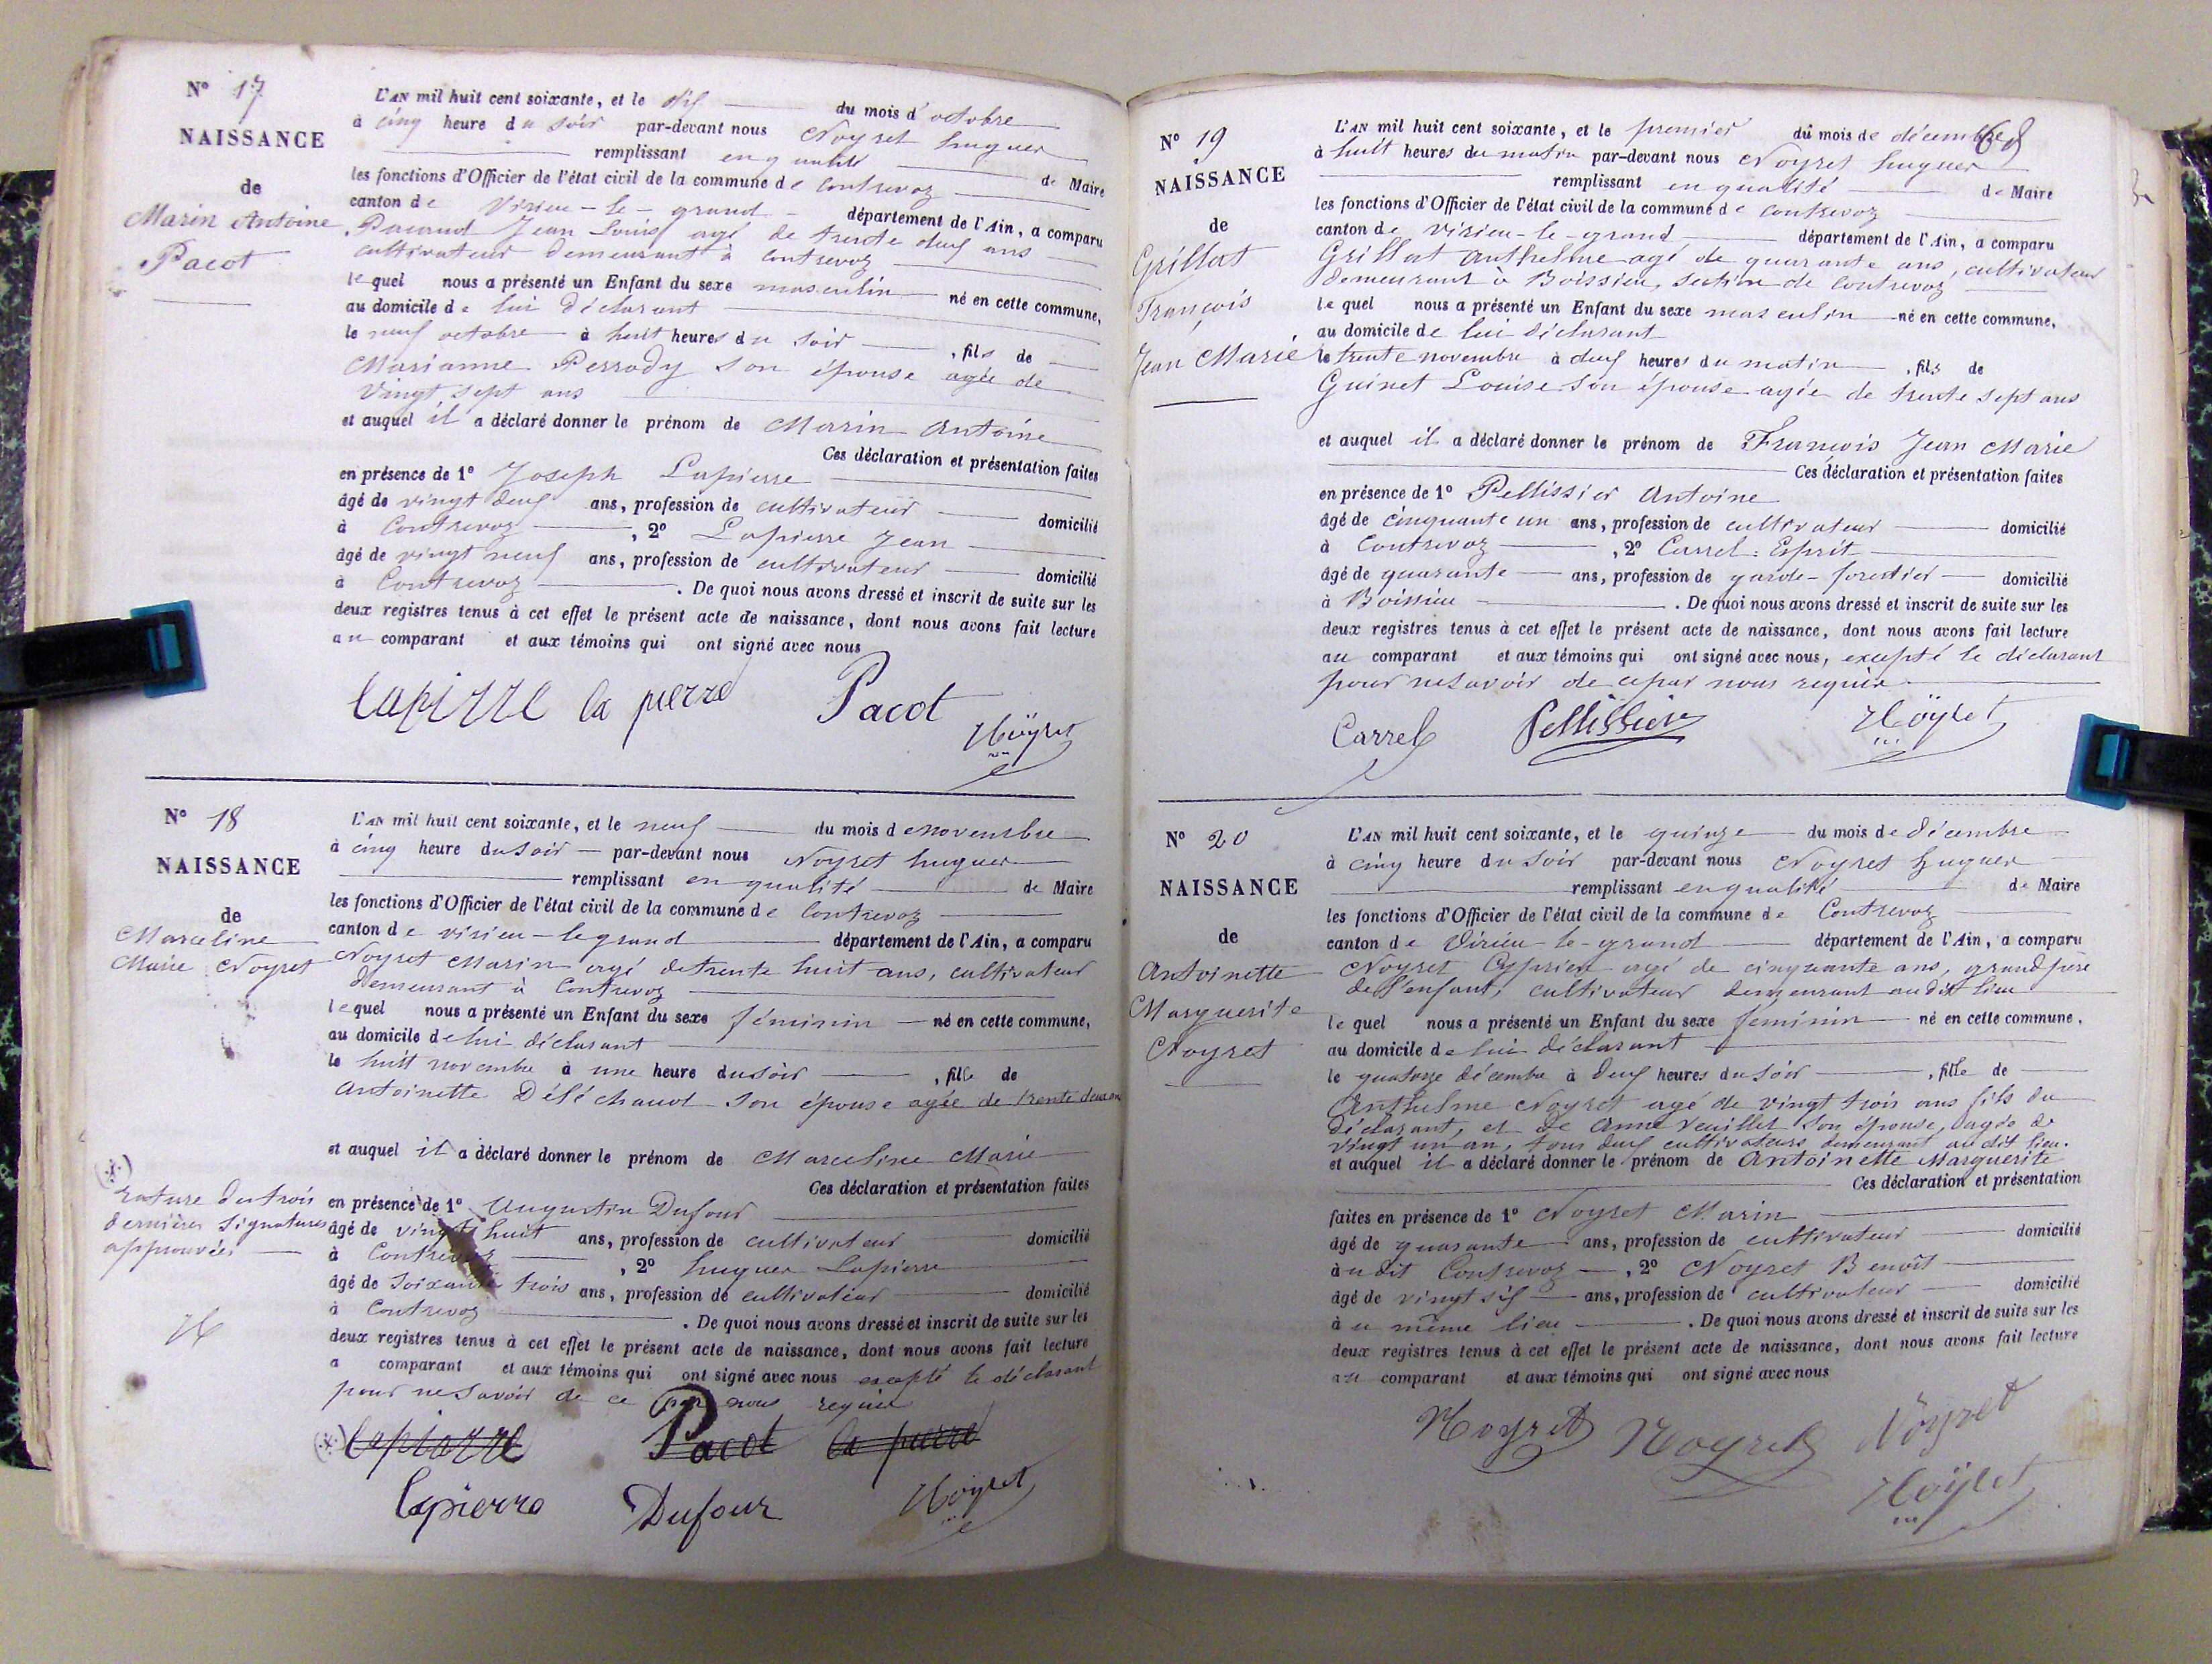 N° 17
NAISSANCE
de
Marin Antoine
Pacot
L'AN mil huit cent soixante, et le dix du mois d'octobre
à cinq heure du soir par-devant nous Noyret huguer
remplissant en qualité de Maire
les fonctions d'Officier de l'état civil de la commune de Contrevoz
canton de Virieu-le-grand département de l'Ain, a comparu
Jean Louis agé de trente deux ans
cultivateur demeurant à Contrevoz
lequel nous a présenté un Enfant du sexe masculin né en cette commune,
au domicile de lui déclarant
le neuf octobre à huit heures du soir , fils de
Marianne Perrody son épouse agée de
vingt sept ans
et auquel il a déclaré donner le prénom de Marin Antoine
Ces déclaration et présentation faites
en présence de 1° Joseph Lapierre
âgé de vingt deux ans, profession de cultivateur domicilié
à Contrevoz , 2° Lapierre Jean
âgé de vingt neuf ans, profession de cultivateur domicilié
à Contrevoz . De quoi nous avons dressé et inscrit de suite sur les
deux registres tenus à cet effet le présent acte de naissance, dont nous avons fait lecture
au comparant et aux témoins qui ont signé avec nous
lapierre la pierre Pacot
Noÿret
N° 18
NAISSANCE
de
Marceline
Marie Noyret
L'AN mil huit cent soixante, et le neuf du mois de novembre
à cinq heure du soir par-devant nous Noyret huguer
remplissant en qualité de Maire
les fonctions d'Officier de l'état civil de la commune de Contrevoz
canton de virieu-le grand département de l'Ain, a comparu
Noyret Marin agé de trente huit ans, cultivateur
demeurant à Contrevoz
lequel nous a présenté un Enfant du sexe féminin né en cette commune,
au domicile de lui déclarant
le huit novembre à une heure du soir , fille de
Antoinette Déléchanot son épouse agée de trente deux ans
et auquel il a déclaré donner le prénom de Marceline Marie
Ces déclaration et présentation faites
en présence de 1° Augustin Dufour
âgé de vingt huit ans, profession de cultivateur domicilié
à Contrevoz , 2° huguer Lapierre
âgé de soixante trois ans, profession de cultivateur domicilié
à Contrevoz . De quoi nous avons dressé et inscrit de suite sur les
deux registres tenus à cet effet le présent acte de naissance, dont nous avons fait lecture
a comparant et aux témoins qui ont signé avec nous excepté le déclarant
pour ne savoir de ce par nous requis
(*) lapierre Pacot la pierre
lapierre Dufour Noÿret
(*)
rature des trois
dernières signatures
approuvées
N
N° 19
NAISSANCE
de
Grillat
François
Jean Marie
68
L'AN mil huit cent soixante, et le premier du mois de décembre
à huit heures du matin par-devant nous Noyret huguer
remplissant en qualité de Maire
les fonctions d'Officier de l'état civil de la commune de Contrevoz
canton de virieu-le-grand département de l'Ain, a comparu
Grillat Anthelme agé de quarante ans, cultivateur
demeurant à Boissieu, section de Contrevoz
lequel nous a présenté un Enfant du sexe masculin né en cette commune,
au domicile de lui déclarant
le trente novembre à deux heures du matin , fils de
Guinet Louise son épouse agée de trente sept ans
et auquel il a déclaré donner le prénom de François Jean Marie
Ces déclaration et présentation faites
en présence de 1° Pellissier Antoine
âgé de cinquante un ans, profession de cultivateur domicilié
à Contrevoz , 2° Carrel Esprit
âgé de quarante ans, profession de garde-forestier domicilié
à Boissieu . De quoi nous avons dressé et inscrit de suite sur les
deux registres tenus à cet effet le présent acte de naissance, dont nous avons fait lecture
au comparant et aux témoins qui ont signé avec nous, excepté le déclarant
pour ne savoir de ce par nous requis
Carrel Pellissier Noÿret
N° 20
NAISSANCE
de
Antoinette
Marguerite
Noyret
L'AN mil huit cent soixante, et le quinze du mois de décembre
à cinq heure du soir par-devant nous Noyret huguer
remplissant en qualité de Maire
les fonctions d'Officier de l'état civil de la commune de Contrevoz
canton de Virieu-le-grand département de l'Ain, a comparu
Noyret Cyprien agé de cinquante ans, grand père
de l'enfant, cultivateur demeurant audit lieu
lequel nous a présenté un Enfant du sexe féminin né en cette commune,
au domicile de lui déclarant
le quatorze décembre à deux heures du soir , fille de
Anthelme Noyret agé de vingt trois ans fils du
déclarant, et de Anne Veuillet son épouse, agée de
vingt un an, tous deux cultivateurs demeurant au dit lieu.
et auquel il a déclaré donner le prénom de Antoinette Marguerite
Ces déclaration et présentation
faites en présence de 1° Noyret Marin
âgé de quarante ans, profession de cultivateur domicilié
à u dit Contrevoz , 2° Noyret Benoît
âgé de vingt six ans, profession de cultivateur domicilié
à u même lieu . De quoi nous avons dressé et inscrit de suite sur les
deux registres tenus à cet effet le présent acte de naissance, dont nous avons fait lecture
au comparant et aux témoins qui ont signé avec nous
Noyret Noyret Noyret
Noÿret